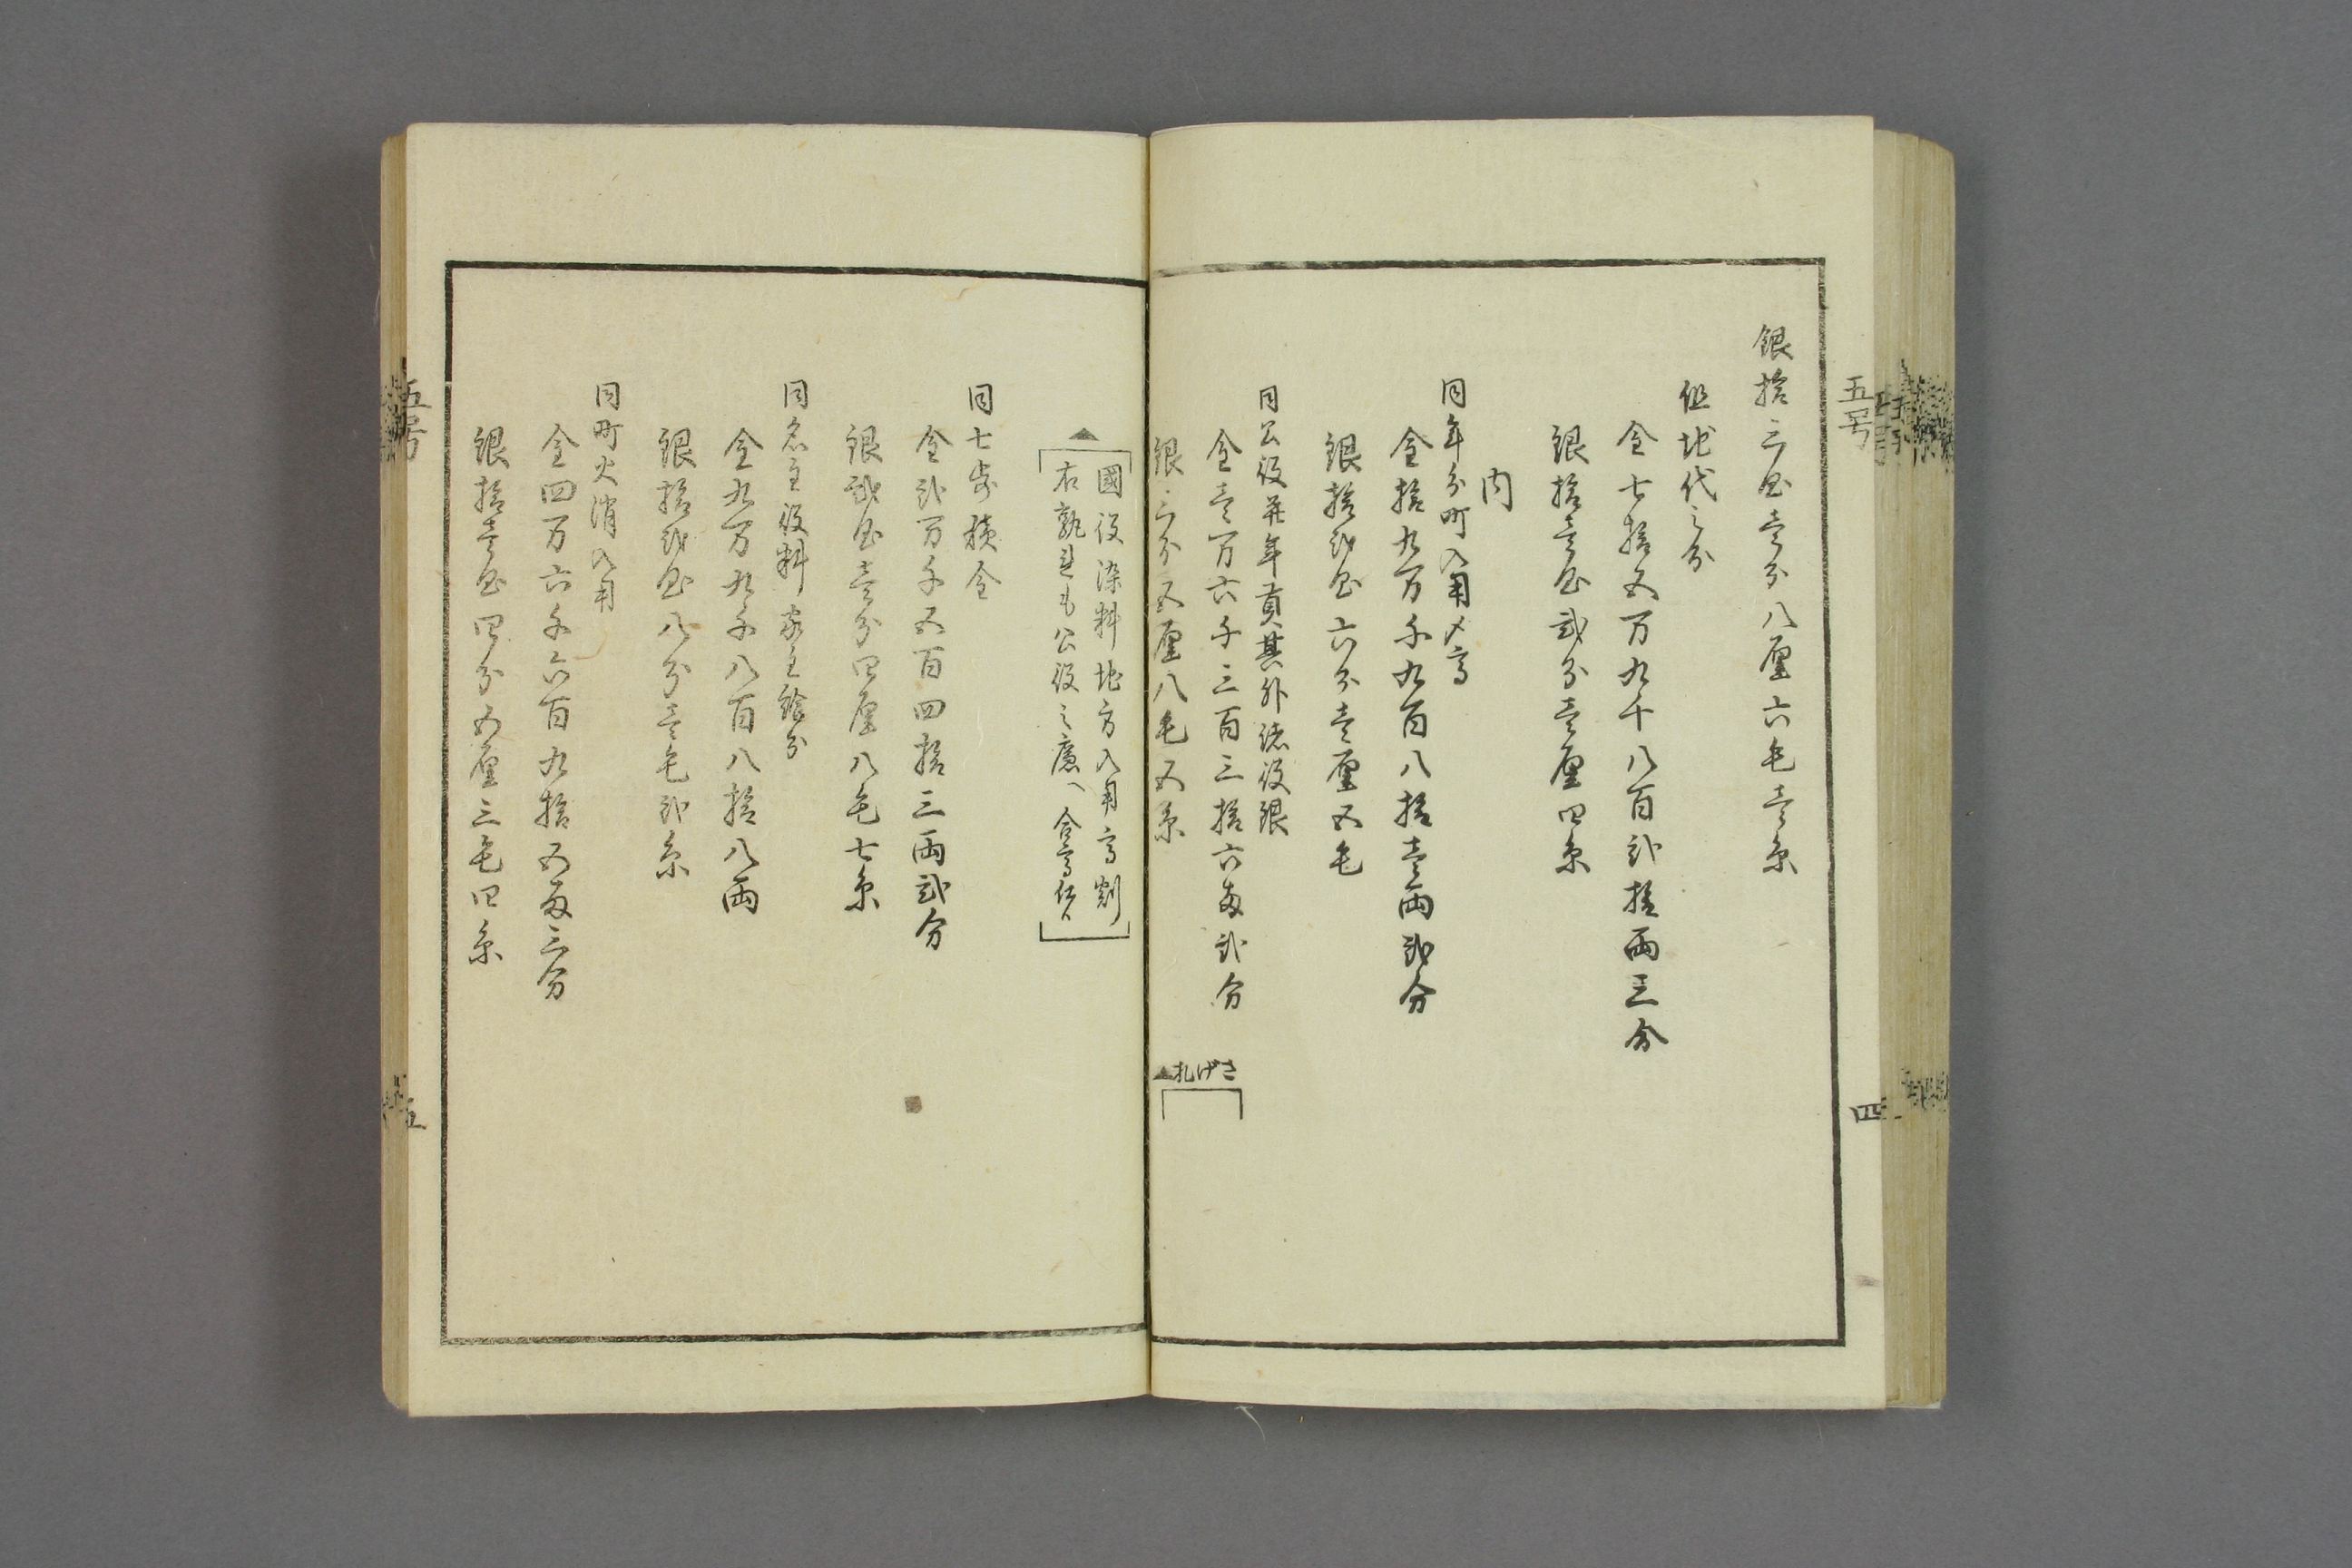 五号
四
銀拾三匁壱分八厘六毛壱糸
但地代之分
金七拾五万九千八百弐拾両三分
銀拾壱匁弐分壱厘四糸
内
同年分町入用〆高
金拾九万千九百八拾壱両弐分
銀拾弐匁六分壱厘五毛
同公役并年貢其外諸役銀
金壱万六千三百三拾六両弐分
銀三分五厘八毛五糸
さげ札
國役染料地方入用高割
右孰れも公役之廉へ合高仕候
同七歩積金
金弐万千五百四拾三両弐分
銀弐匁壱分四厘八毛七糸
同名主役料家主給分
金九万九千八百八拾八両
銀拾弐匁八分壱毛弐糸
同町火消入用
金四万六千六百九拾五両三分
銀拾壱匁四分五厘三毛四糸
五号
五